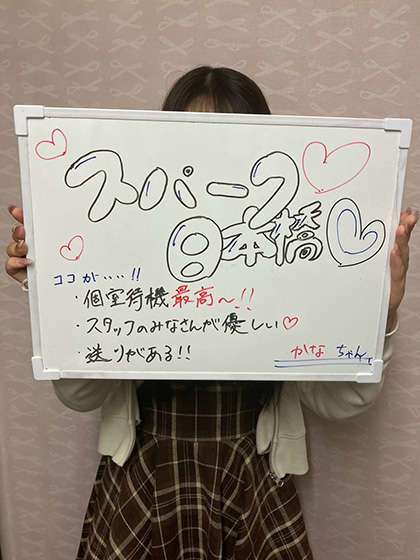 スパーク
日本橋
ココがいい!!
・個室待機最高〜!!
・スタッフのみなさんが優しい♡
・送りがある!!
かなちゃん